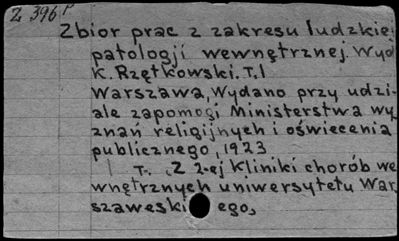 Z 396 P
Zbiór prac z zakresu ludzkiej
patologji wewnętrznej. Wyd
K. Rzętkowski. T. I
Warszawa, Wydano przy udzi-
ale zapomogi Ministerstwa wy
znań religijnych i oświecenia
publicznego, 1923
T. I. Z 2-ej Kliniki chorób we
wnętrznych uniwersytetu War
szaweski ego,